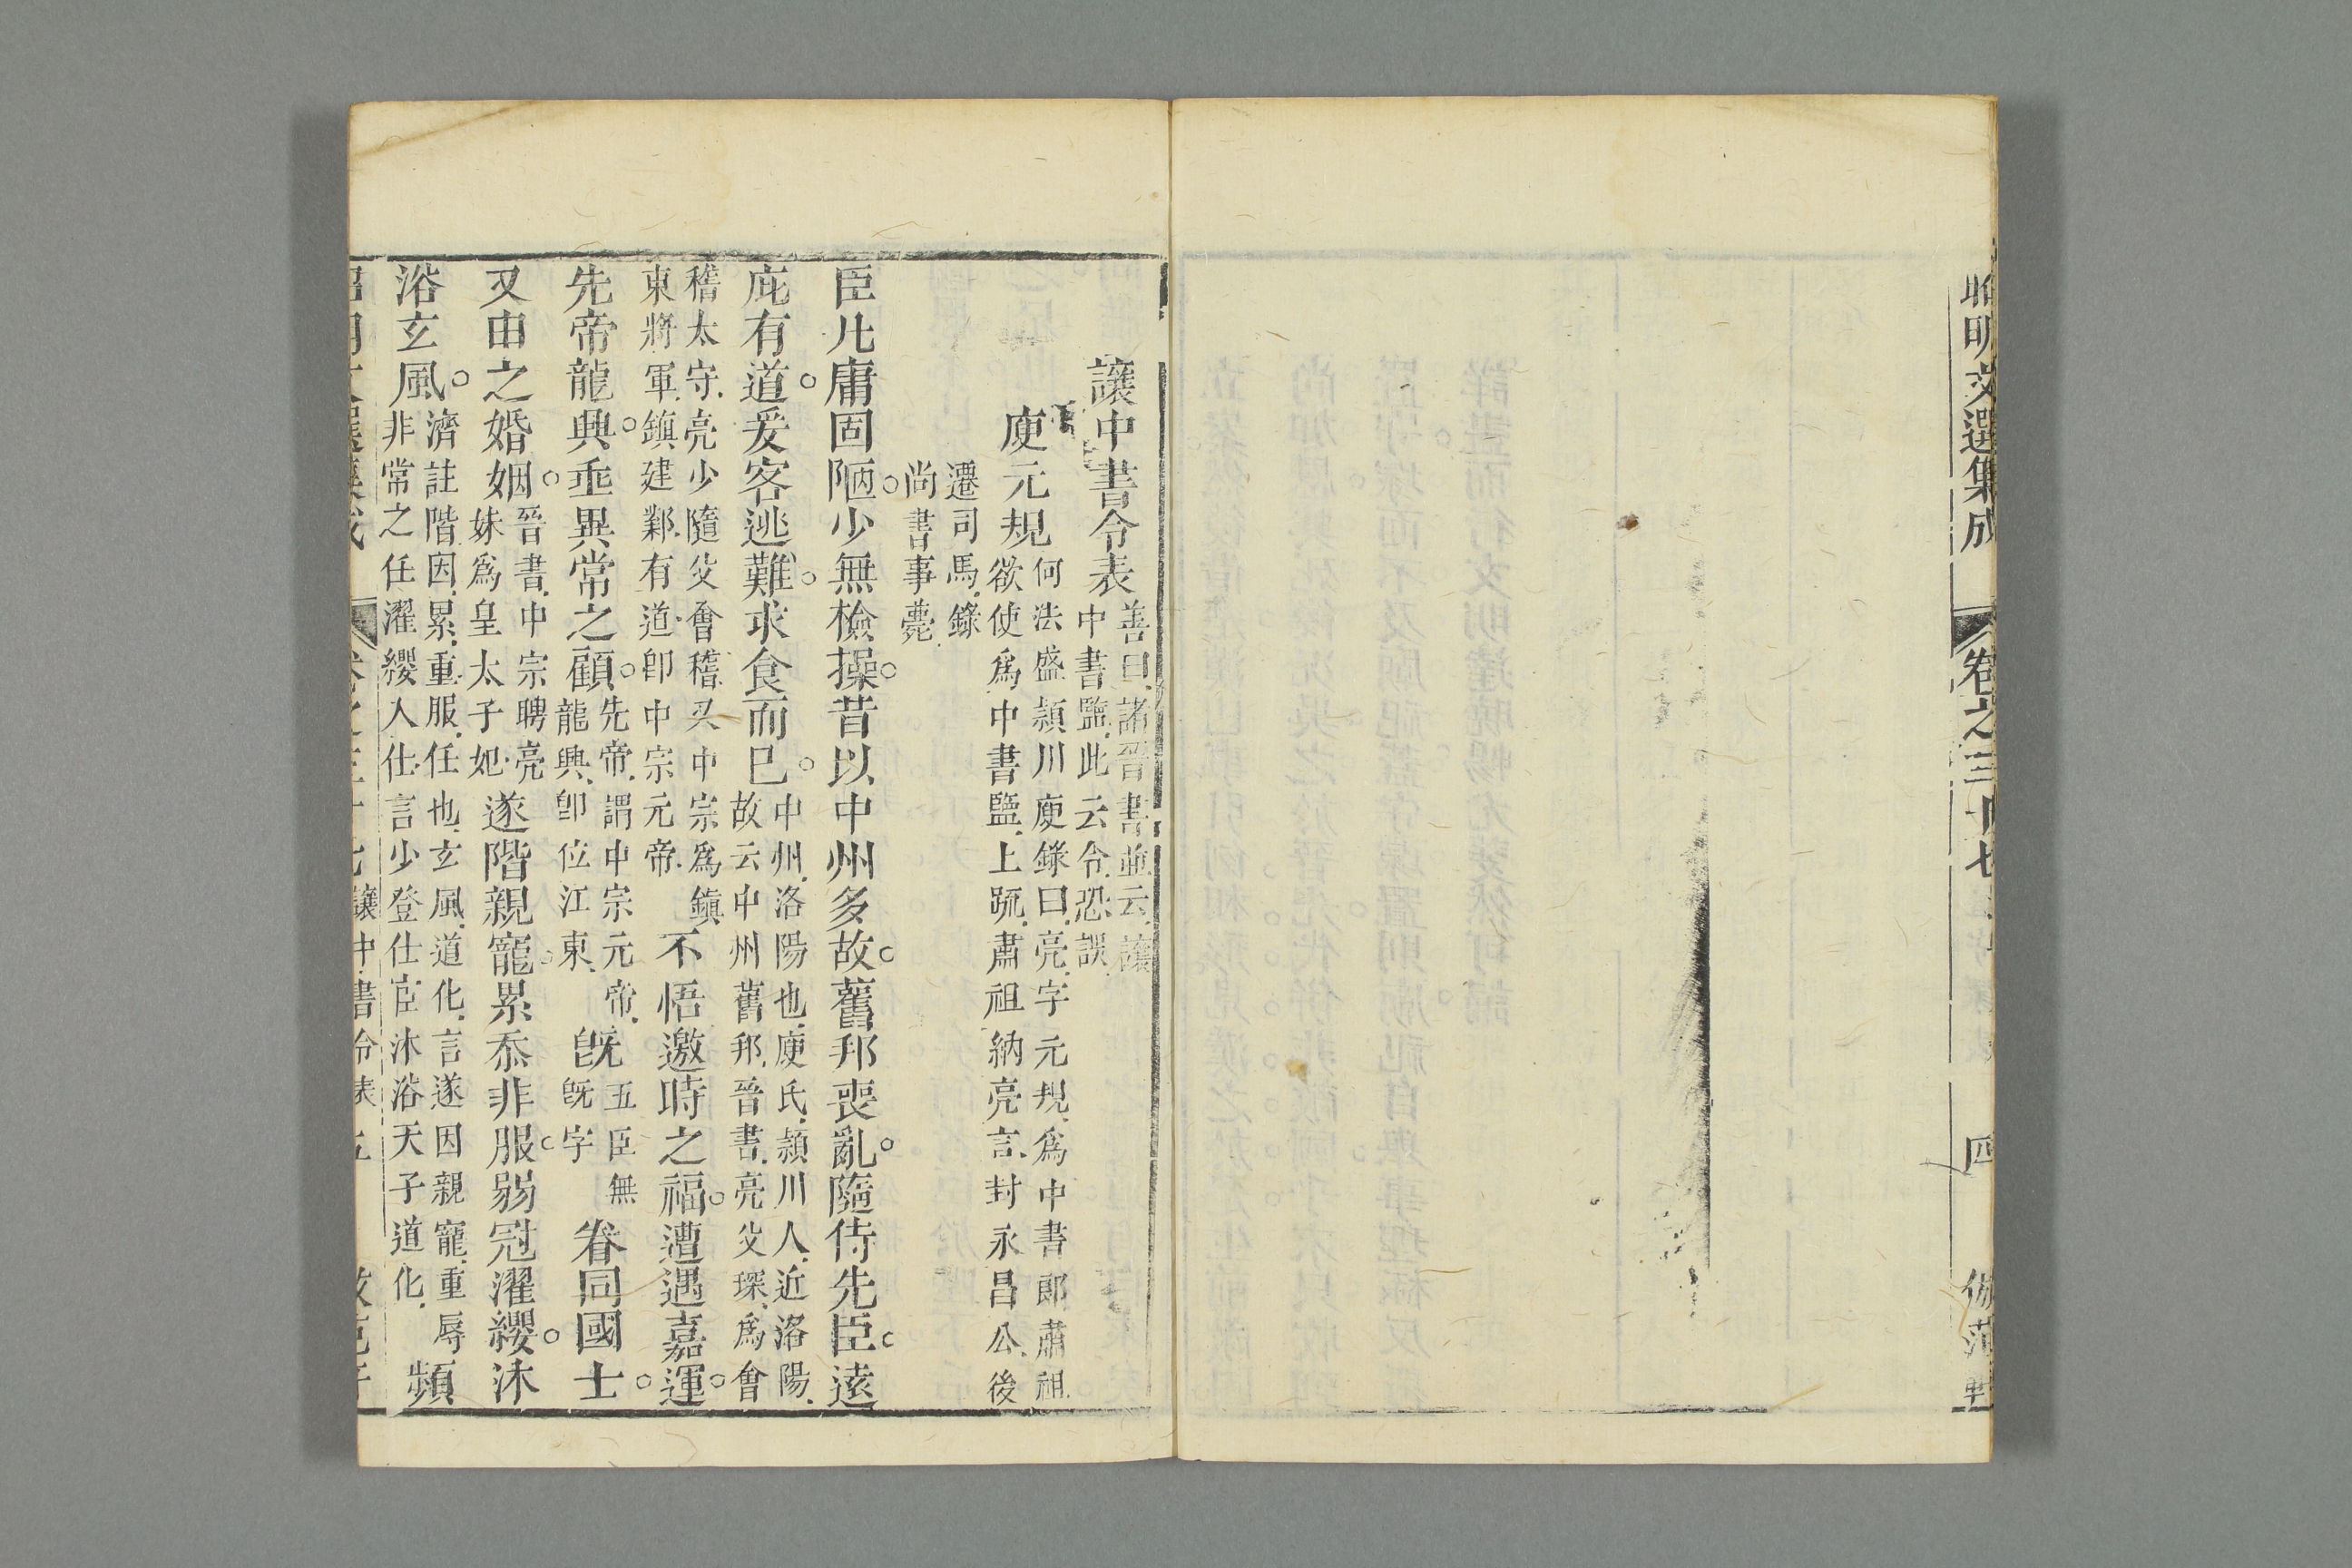 昭明文選集成 卷之三十七 四 仿范軒
讓中書令表 善曰諸晉書並云讓中書監此云令恐誤
庾元規 何法盛潁川庾錄曰亮字元規爲中書郎肅祖欲使爲中書監上疏肅祖納亮言封永昌公後
遷司馬錄尚書事薨
臣凡庸固陋少無檢操昔以中州多故舊邦喪亂隨侍先臣遠
庇有道爰客逃難求食而已 中州洛陽也庾氏潁川人近洛陽故云中州舊邦晉書亮父琛爲會
稽太守亮少隨父會稽又中宗爲鎮東將軍鎮建鄴有道卽中宗元帝 不悟邀時之福遭遇嘉運
先帝龍興垂異常之顧 先帝謂中宗元帝龍興卽位江東 旣 五臣無旣字 眷同國士
又申之婚姻 晉書中宗聘亮妹爲皇太子妃 遂階親寵累忝非服弱冠濯纓沐
浴玄風 濟註階因累重服任也玄風道化言遂因親寵重辱非常之任濯纓入仕言少登仕宦沐浴天子道化 頻
讓中書令表